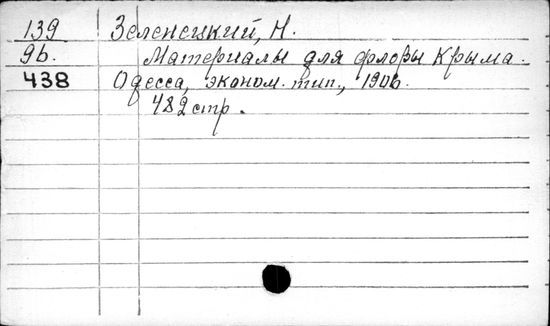 139 Зеленецкий, Н.
9б. Материалы для флоры Крыма.
438 Одесса, эконом. тип., 1906.
482 стр.